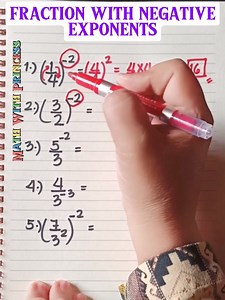 FRACTION WITH NEGATIVE
EXPONENTS
MATH WITH PRINCESS
1.) (1/4)⁻² = (4)² = 4×4 = 16
2.) (3/2)⁻² =
3.) 5⁻²/3 =
4.) 4/3⁻³ =
5.) (7/3²)⁻² =